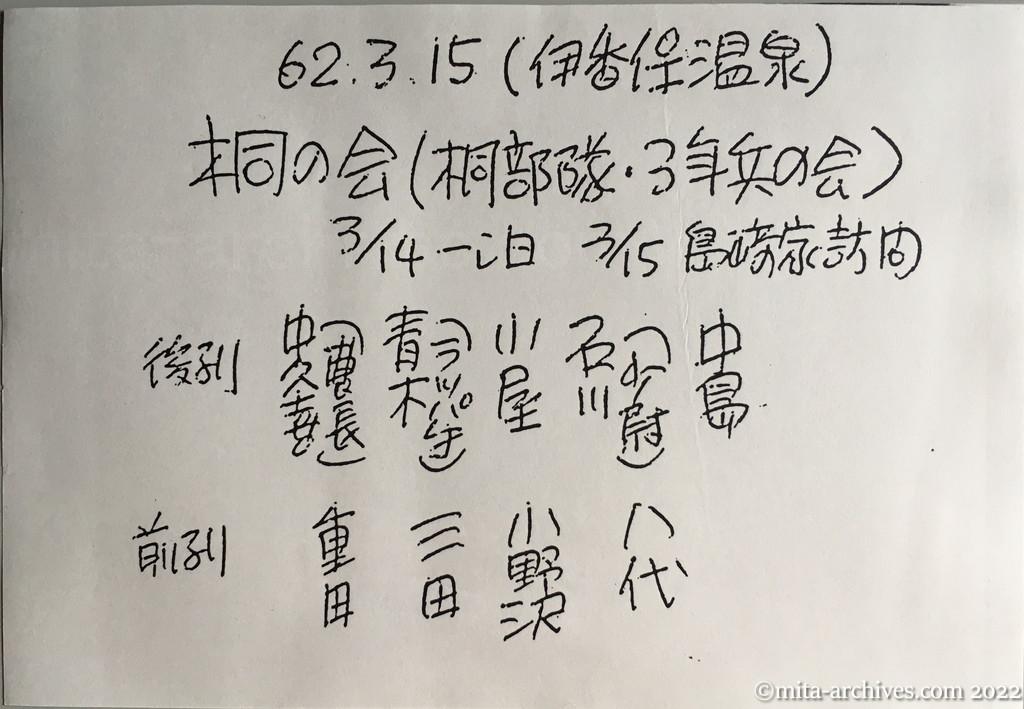 62.3.15(伊香保温泉)
桐の会(桐部隊・3年兵の会)
3/14一泊 3/15 島崎家訪問
後列 中久喜(農長) 青木(ラッパ手) 小屋 石川(少尉) 中島
前列 重田 三田 小野沢 八代
©mita-archives.com 2022